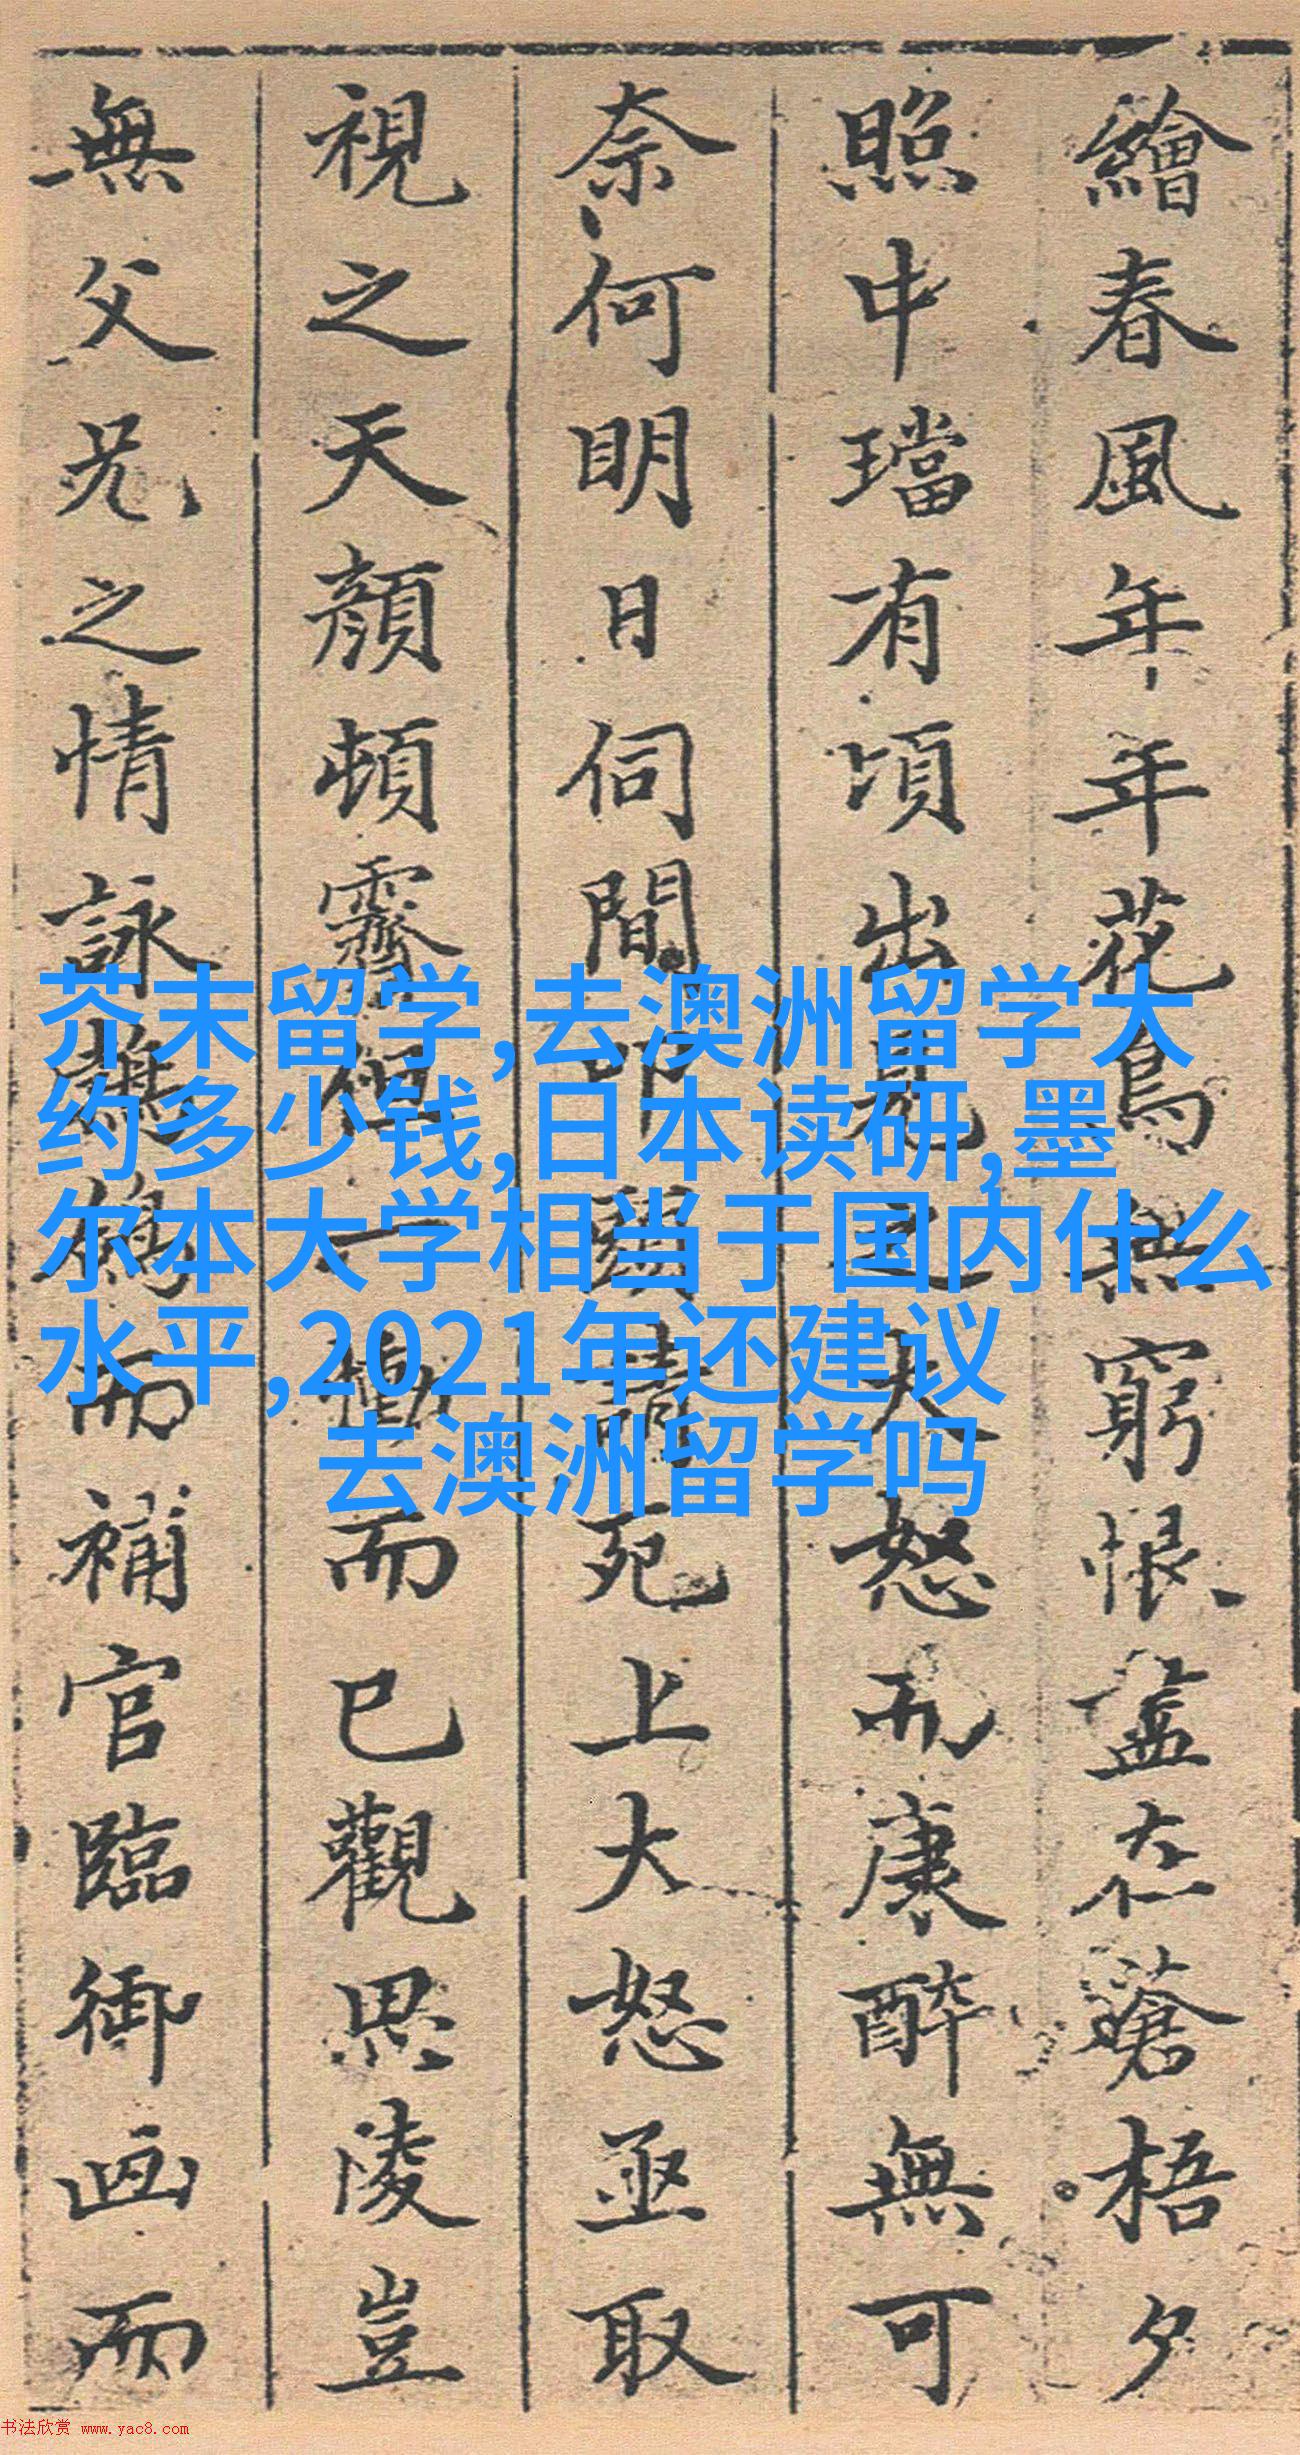 繪春風年年花鳥無窮恨盡在蒼梧夕
照中璫有頃出見之大怒而康醉無可
奈何明日伺間叩頭請死上大怒亟取
視之天顏頓霽但一慟而已觀思陵豈
無父兄之情詠而補官臨御画而
芥末留学,去澳洲留学大
约多少钱,日本读研,墨
尔本大学相当于国内什么
水平,2021年还建议
去澳洲留学吗
书法欣赏 www.yac8.com